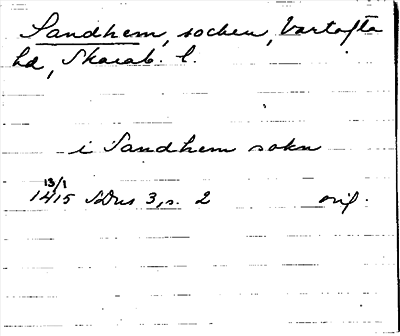 Sandhem, socken, Vartofta
hd, Skarab. l.
i Sandhem sokn
13/1
1415 SDns 3, s. 2 orig.